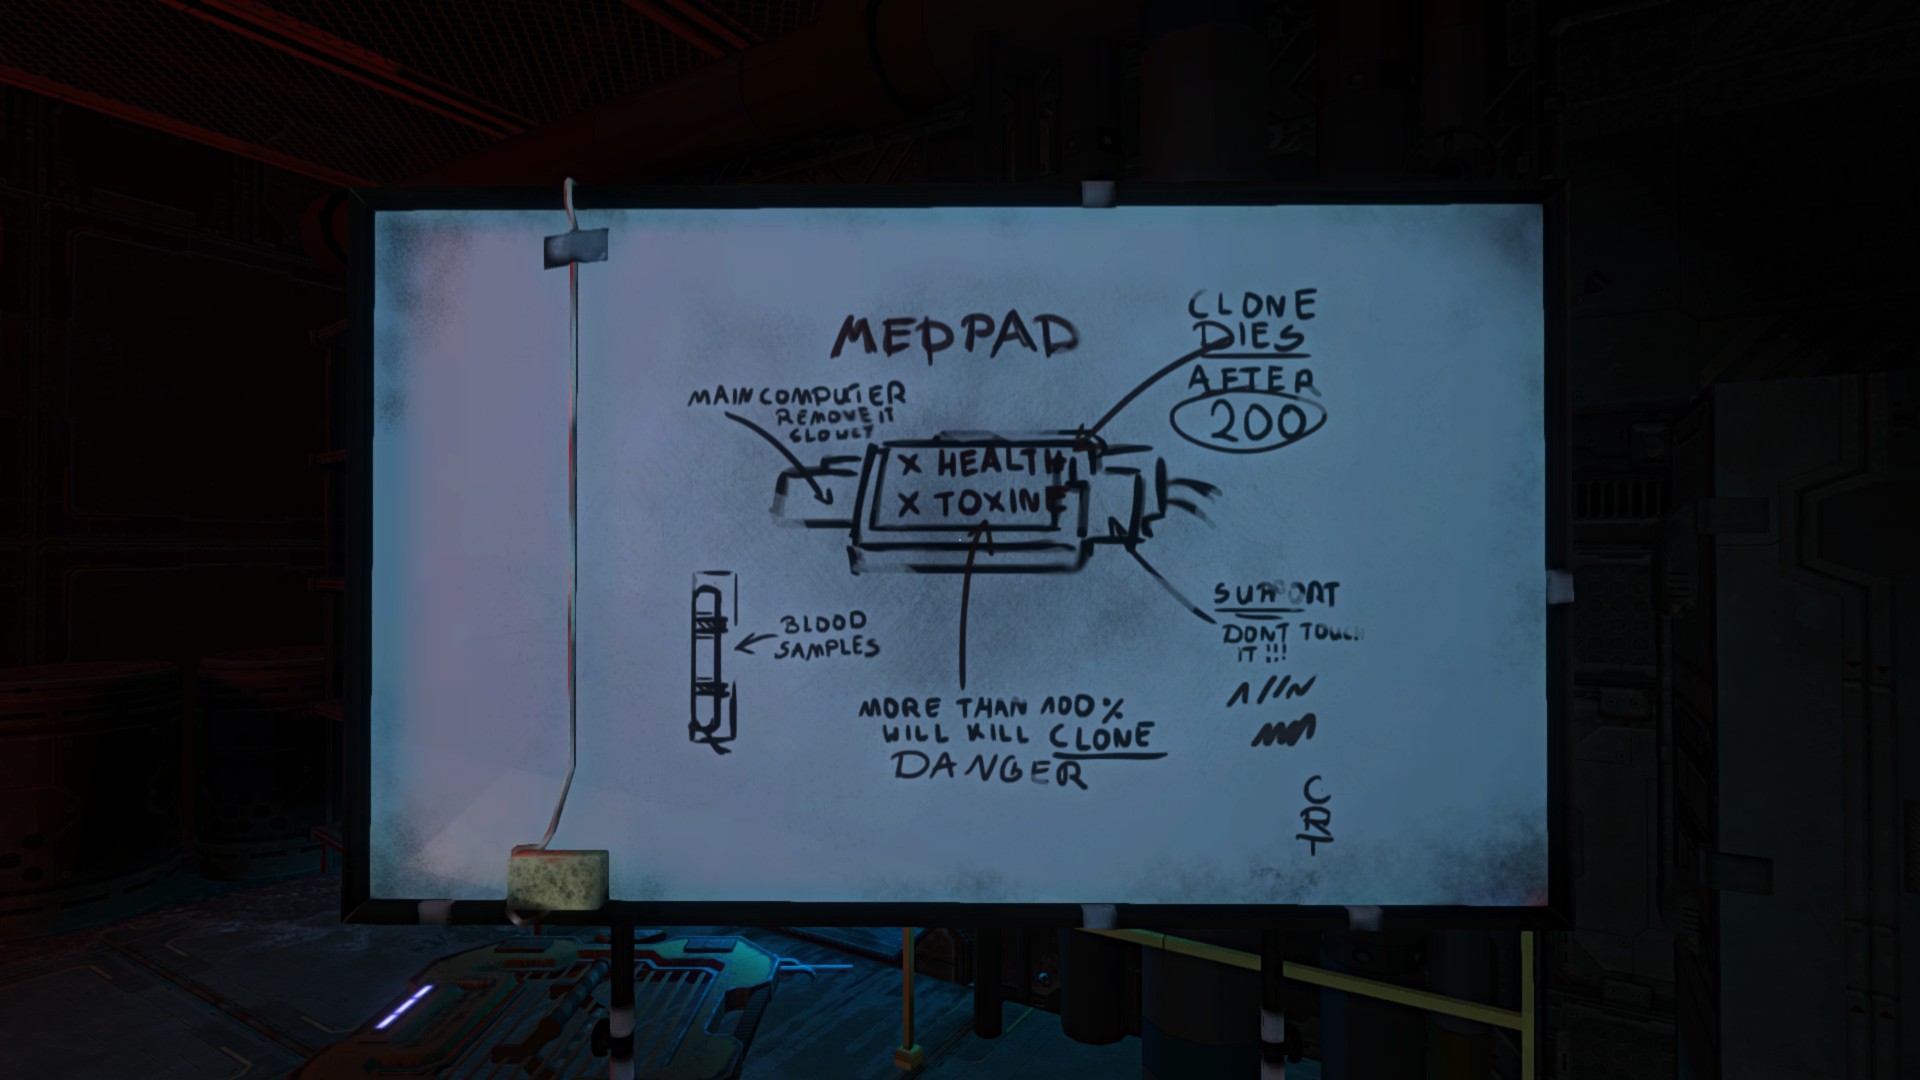 MEDPAD
CLONE
DIES
AFTER
200
MAIN COMPUTER
REMOVE IT
SLOWLY
X HEALTH
X TOXINE
BLOOD
SAMPLES
SUPPORT
DONT TOUCH
IT !!!
MORE THAN 100%
WILL KILL CLONE
DANGER